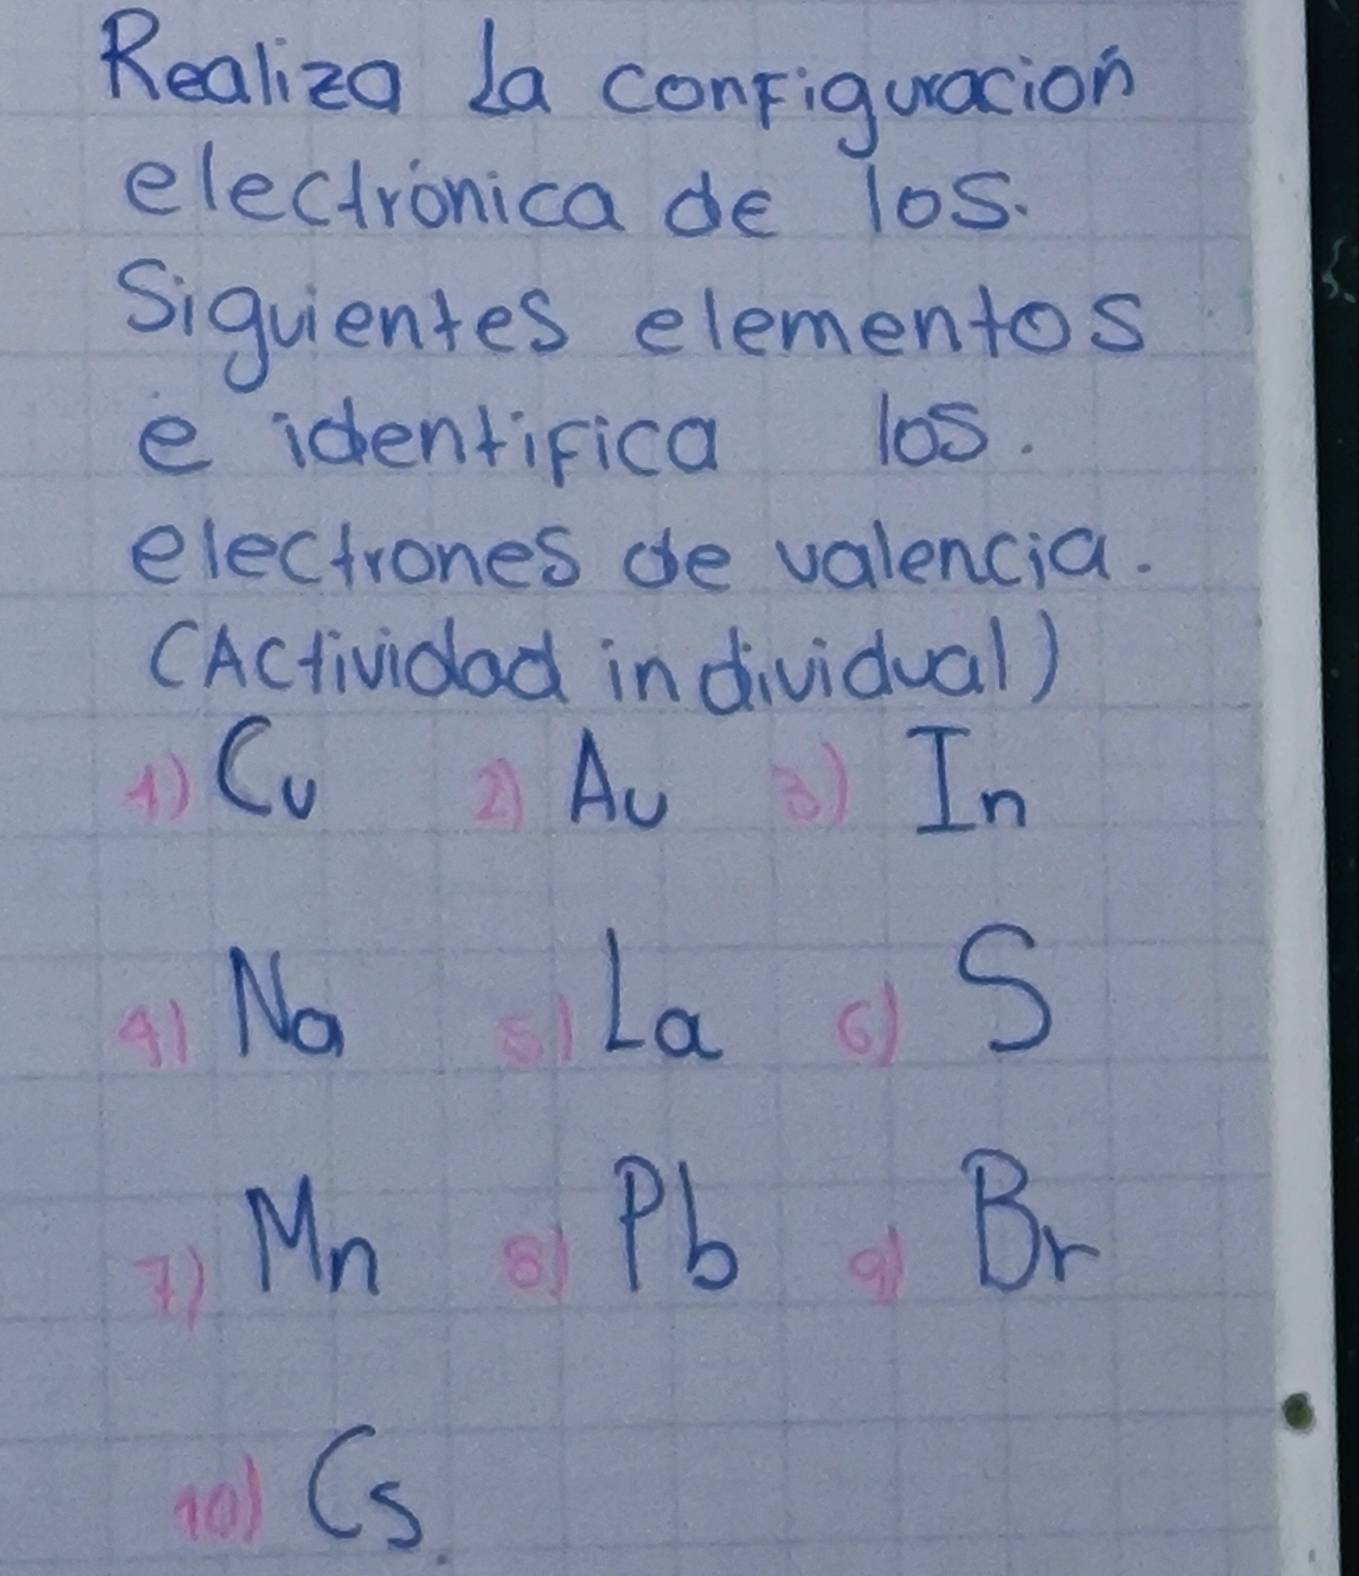 Realiza La configuracion
electrónica de los.
Siguientes elementos
e identifica los.
electrones de valencia.
(Actividad individual)
1) Cu 2) Au 3) In
4) Na 5) La 6) S
7) Mn 8) Pb 9) Br
10) Cs.